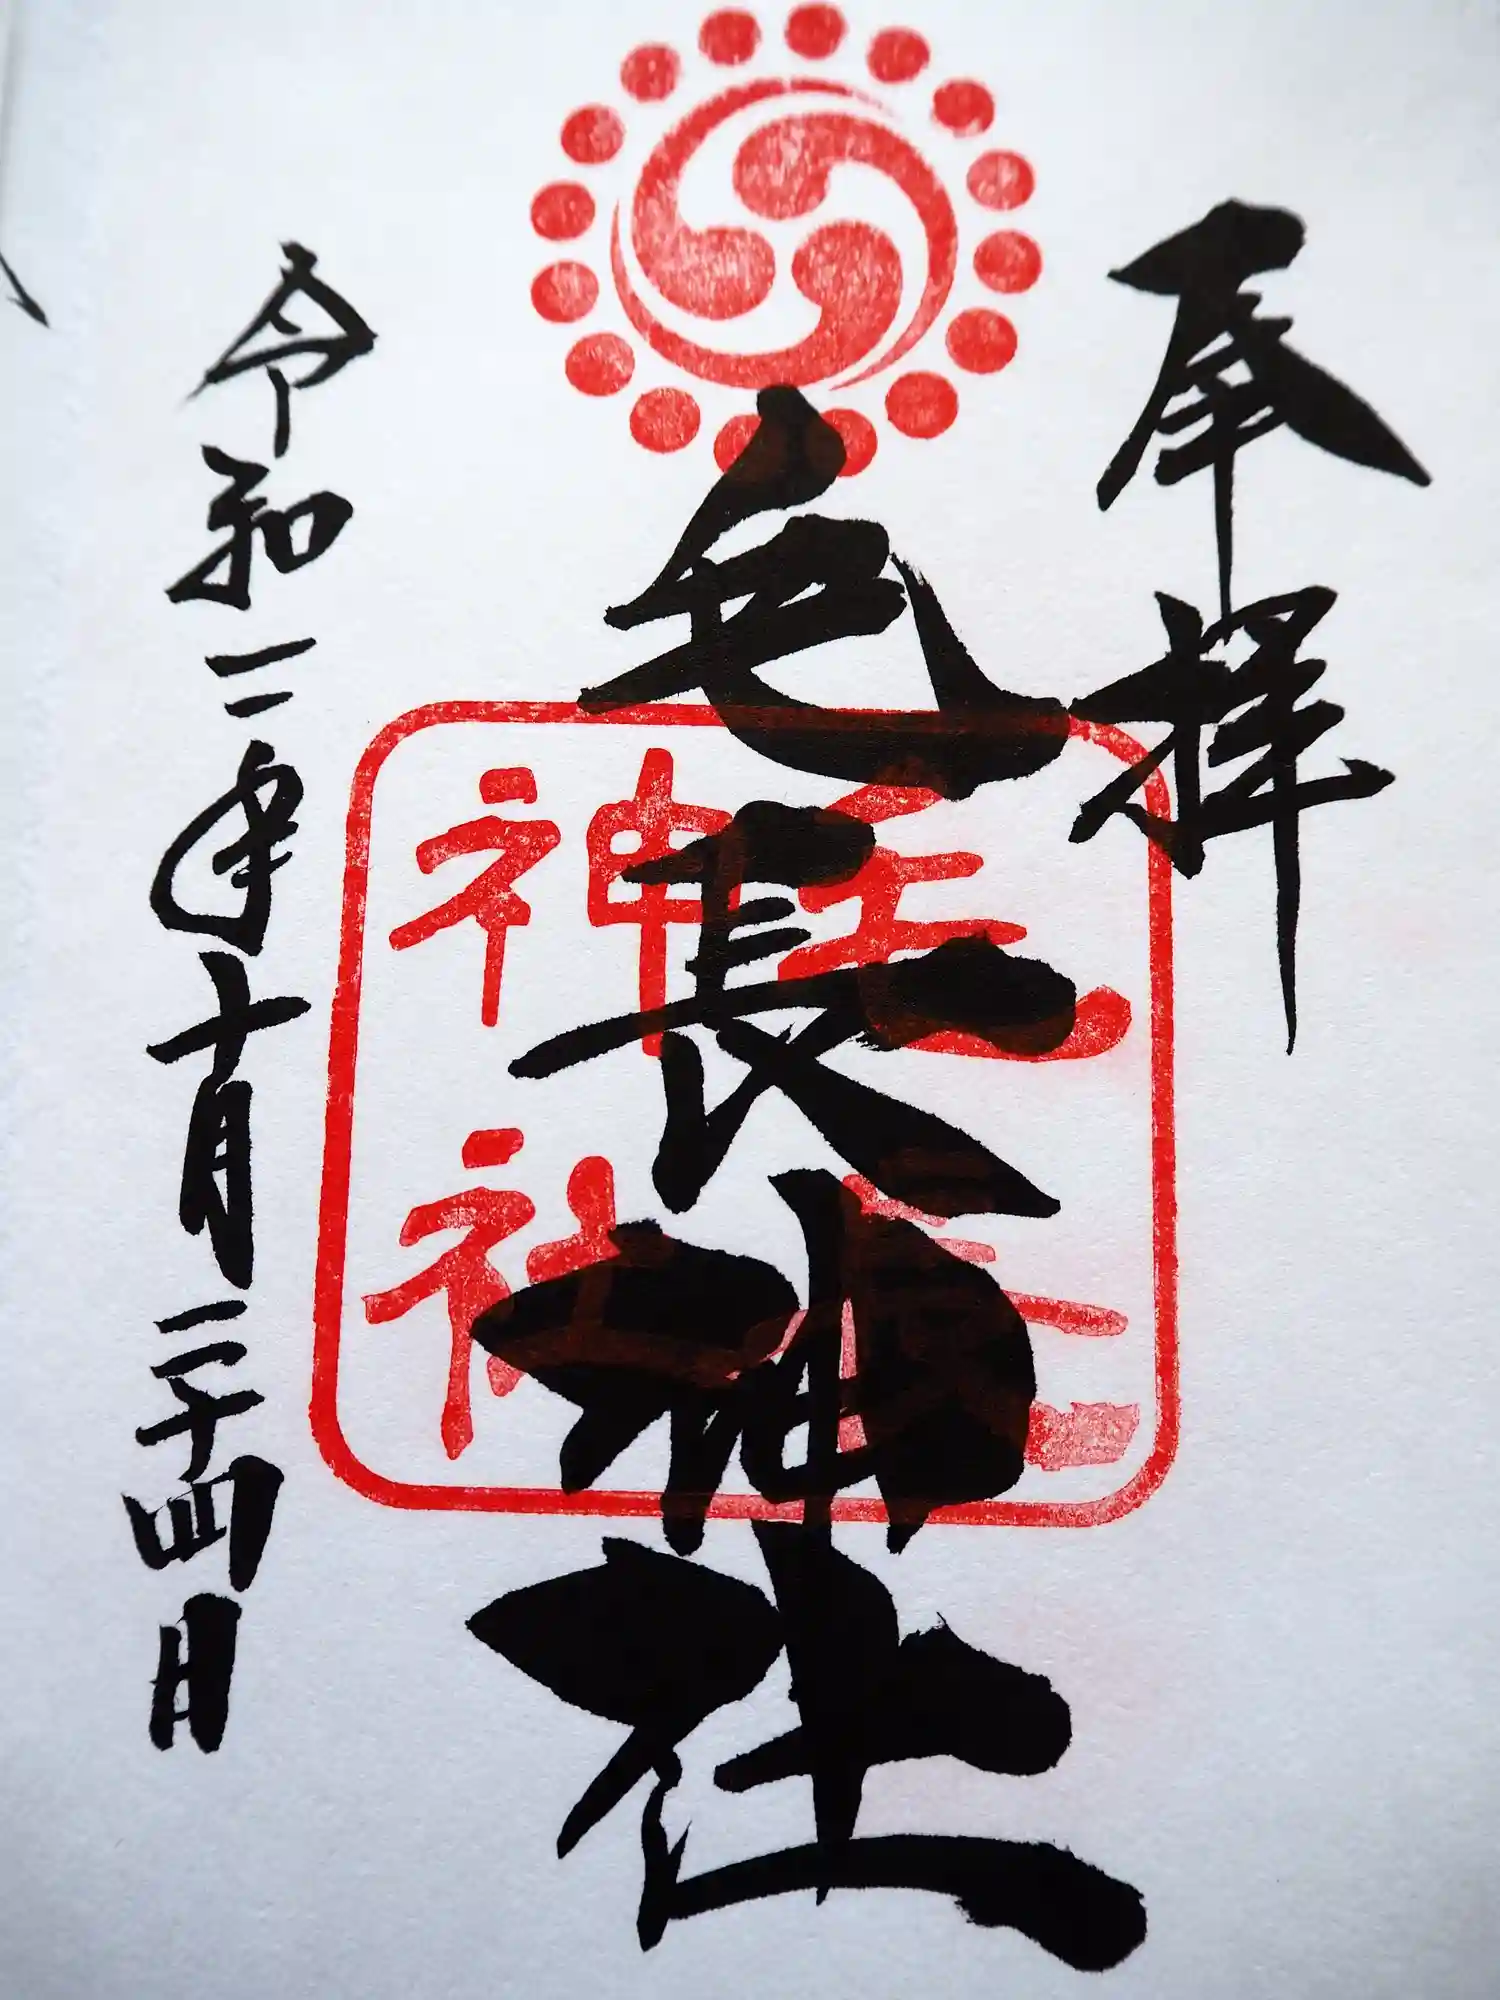 奉拝
毛長神社
毛長
神社
令和二年十月二十四日